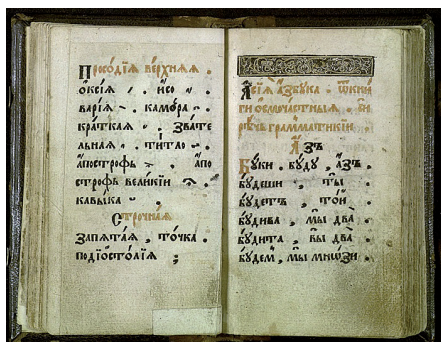 Просо́дїѧ ве́рхнѧѧ .
о҆ксі́ѧ ́ . и҆со ҆ .
варі́ѧ ̀ . камо́ра ̑ .
кра́ткаѧ ̆ . зва́те
льнаѧ ҅ . ти́тло ҃ .
а҆по́строфъ . а҆по
строфъ вели́кїй .
кавы́ка .
Стро́чнаѧ
запѧта́ѧ , то́чка .
подїѡсто́лїѧ ;
Сїѧ̀ а҆́збука . ѿ кни
ги осмоча́стныѧ .
грамма́тикїи .
А҆́зъ
Бу́ки . бу́дꙋ , а҆́зъ .
бу́деши , ты̀ .
бу́детъ , то́й .
бу́дива , мы̀ два̀ .
бу́дита , вы̀ два̀ .
бу́демъ , мы̀ мно́зи .